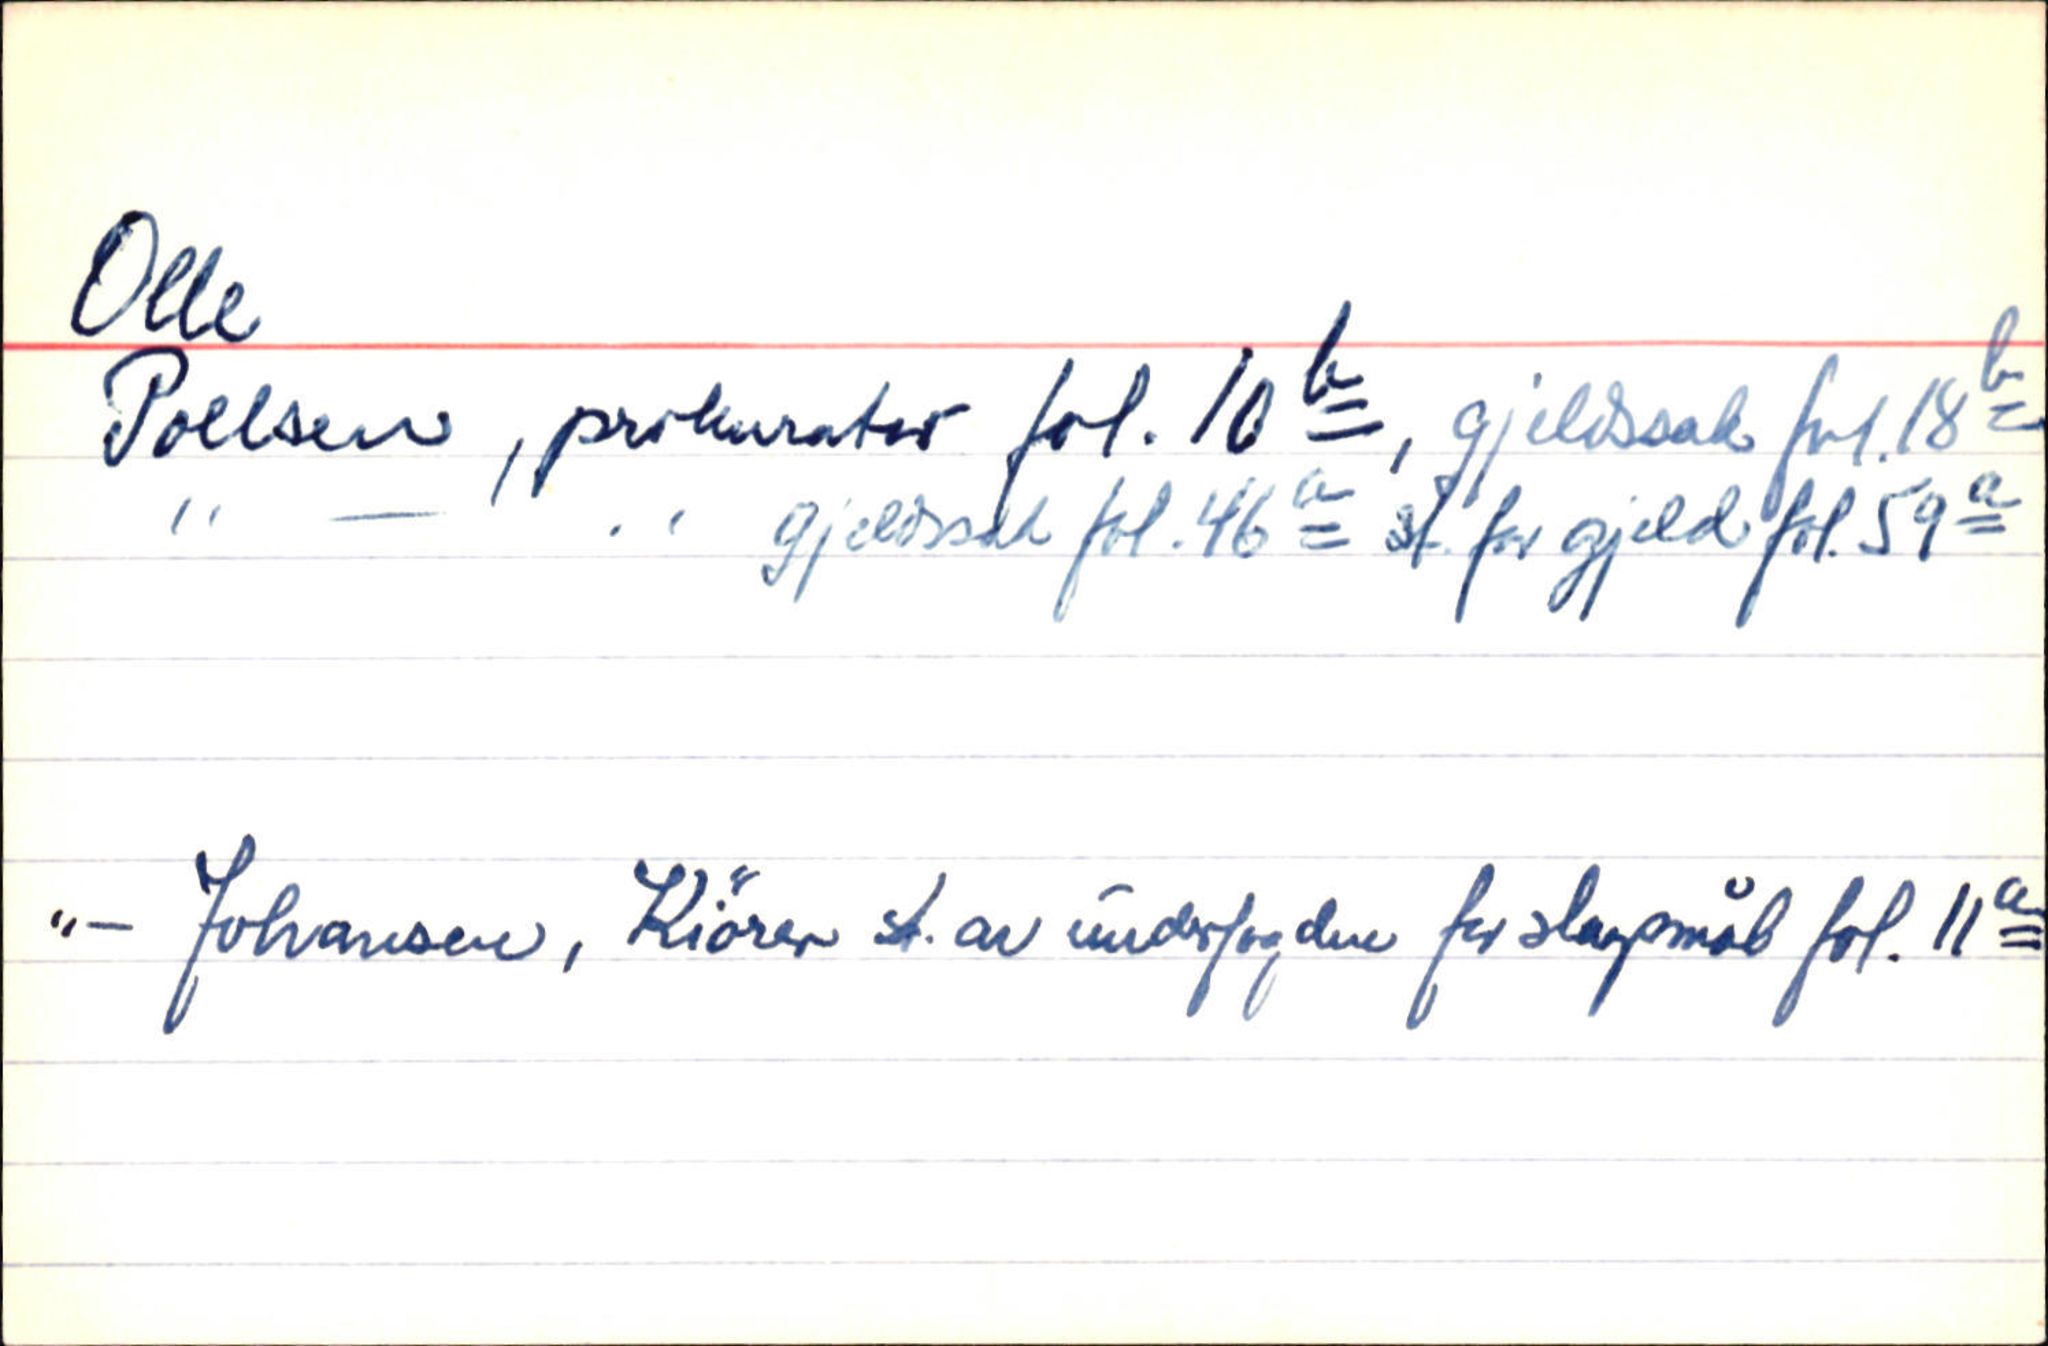 Olle
Poelsen, prokurator fol. 10 b, gjeldssak fol. 18 b
" — " gjeldssak fol. 46 a st. for gjeld fol. 59 a
"— Johansen, Kiörer st. av underfogden for slagsmål fol. 11 a